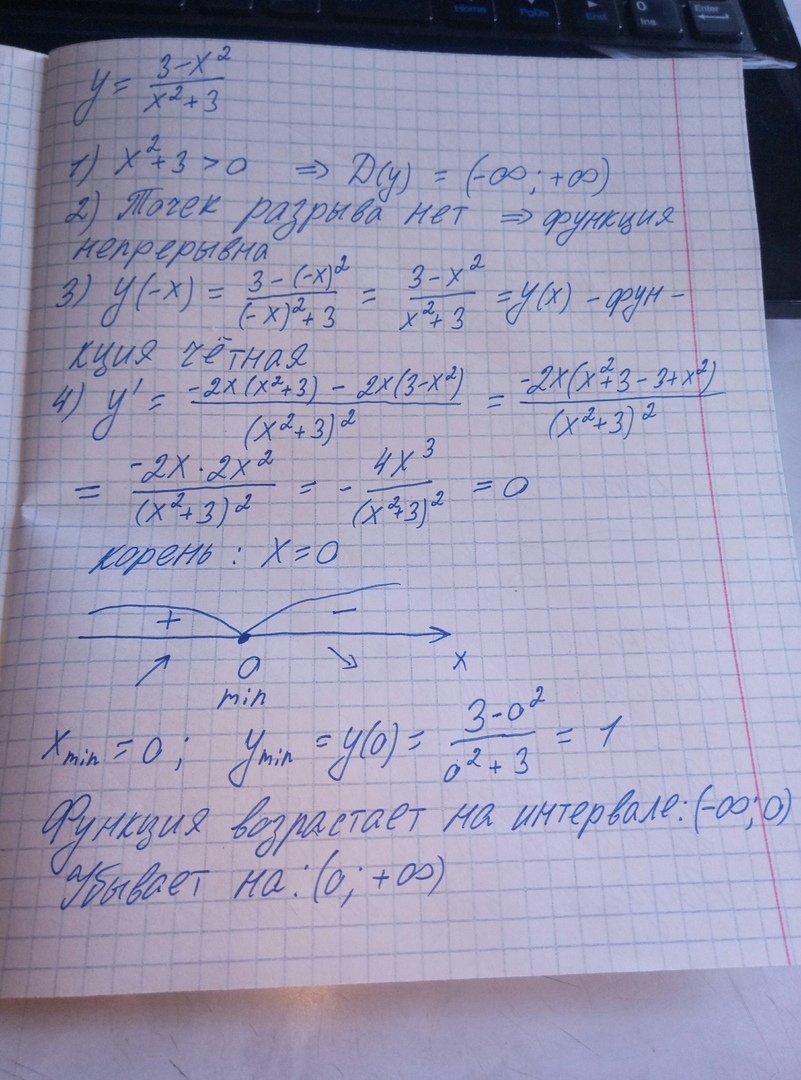 y = (3-x²)/(x²+3)
1) x²+3 > 0 ⇒ D(y) = (-∞; +∞)
2) Точек разрыва нет ⇒ функция
непрерывна
3) y(-x) = (3-(-x)²)/((-x)²+3) = (3-x²)/(x²+3) = y(x) - фун-
кция чётная
4) y' = (-2x(x²+3) - 2x(3-x²))/(x²+3)² = (-2x(x²+3-3+x²))/(x²+3)²
= (-2x·2x²)/(x²+3)² = - 4x³/(x²+3)² = 0
корень: x=0
+ −
↗ 0 ↘ x
min
x min = 0; y min = y(0) = (3-0²)/(0²+3) = 1
Функция возрастает на интервале: (-∞; 0)
Убывает на: (0; +∞)
Home
PgDn
End
0
Ins
Enter